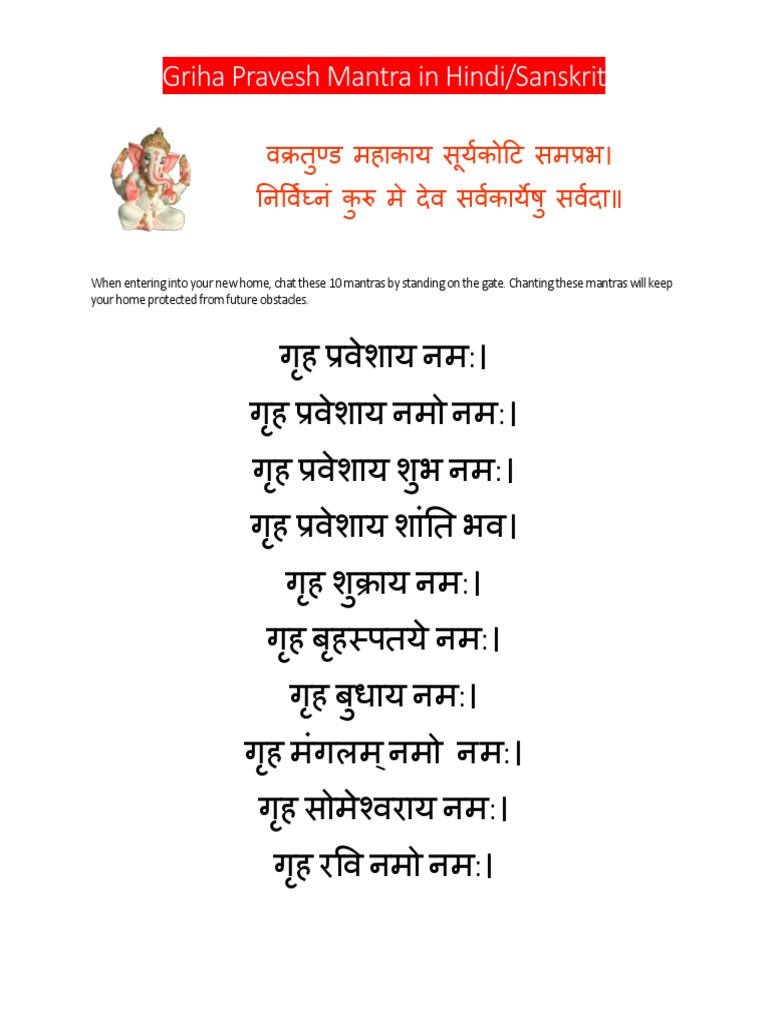 Griha Pravesh Mantra in Hindi/Sanskrit
वक्रतुण्ड महाकाय सूर्यकोटि समप्रभ।
निर्विघ्नं कुरु मे देव सर्वकार्येषु सर्वदा॥
When entering into your new home, chat these 10 mantras by standing on the gate. Chanting these mantras will keep
your home protected from future obstacles.
गृह प्रवेशाय नम:।
गृह प्रवेशाय नमो नम:।
गृह प्रवेशाय शुभ नम:।
गृह प्रवेशाय शांति भव।
गृह शुक्राय नम:।
गृह बृहस्पतये नम:।
गृह बुधाय नम:।
गृह मंगलम् नमो नम:।
गृह सोमेश्वराय नम:।
गृह रवि नमो नम:।